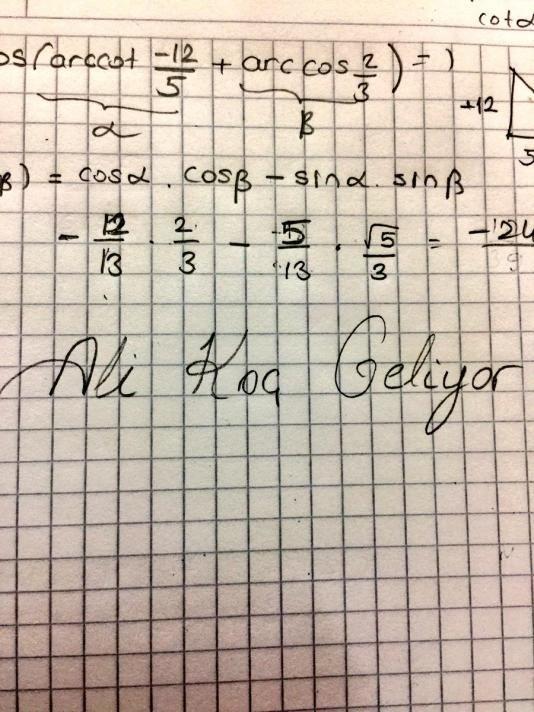 cotα
os(arccot -12/5 + arccos 2/3) = )
α β
+12
5
β) = cosα . cosβ - sinα . sinβ
- 12/13 . 2/3 - 5/13 . √5/3 = -24
Ali Koç Geliyor